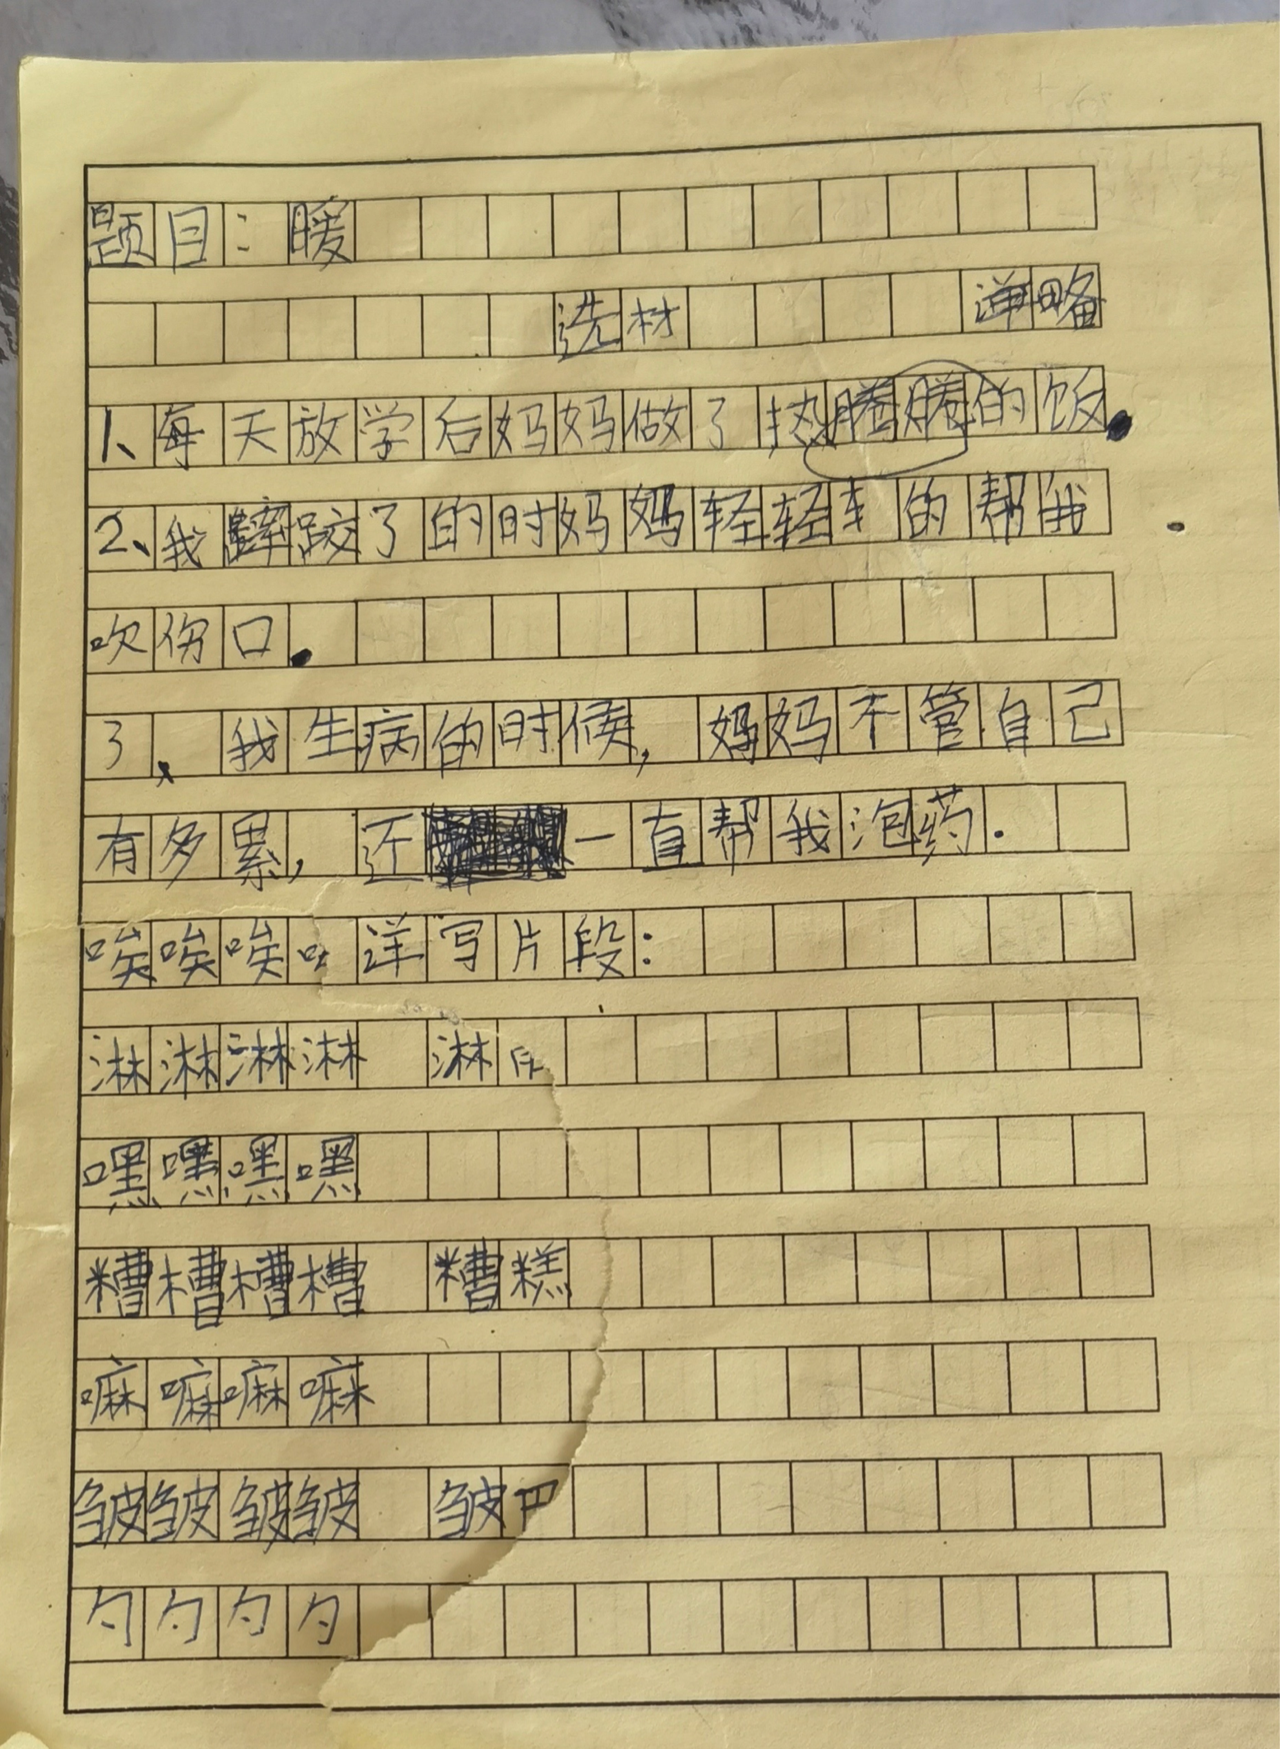 题目：暖
选材 详略
1、每天放学后妈妈做了热腾腾的饭。
2、我摔跤了的时妈妈轻轻的帮我
吹伤口。
3、我生病的时候，妈妈不管自己
有多累，还一直帮我泡药.
唉唉唉 详写片段：
淋淋淋淋 淋
嘿嘿嘿嘿
糟槽槽槽 糟糕
嘛嘛嘛嘛
皱皱皱皱 皱巴
勺勺勺勺